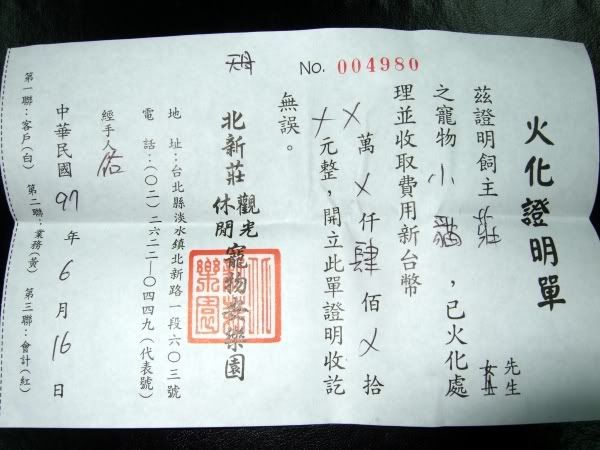 No. 004980
火化證明單
茲證明飼主莊 先生
之寵物小貓,已火化處
理並收取費用新台幣
㐅萬㐅仟肆佰㐅拾
㐅元整,開立此單證明收訖
無誤。
北新莊 觀光休閒 寵物安樂園
地 址:台北縣淡水鎮北新路一段六〇三號
電 話:(〇二)二六二二—〇四四九(代表號)
經手人
中華民國97年6月16日
第一聯:客戶(白) 第二聯:業務(黃) 第三聯:會計(紅)